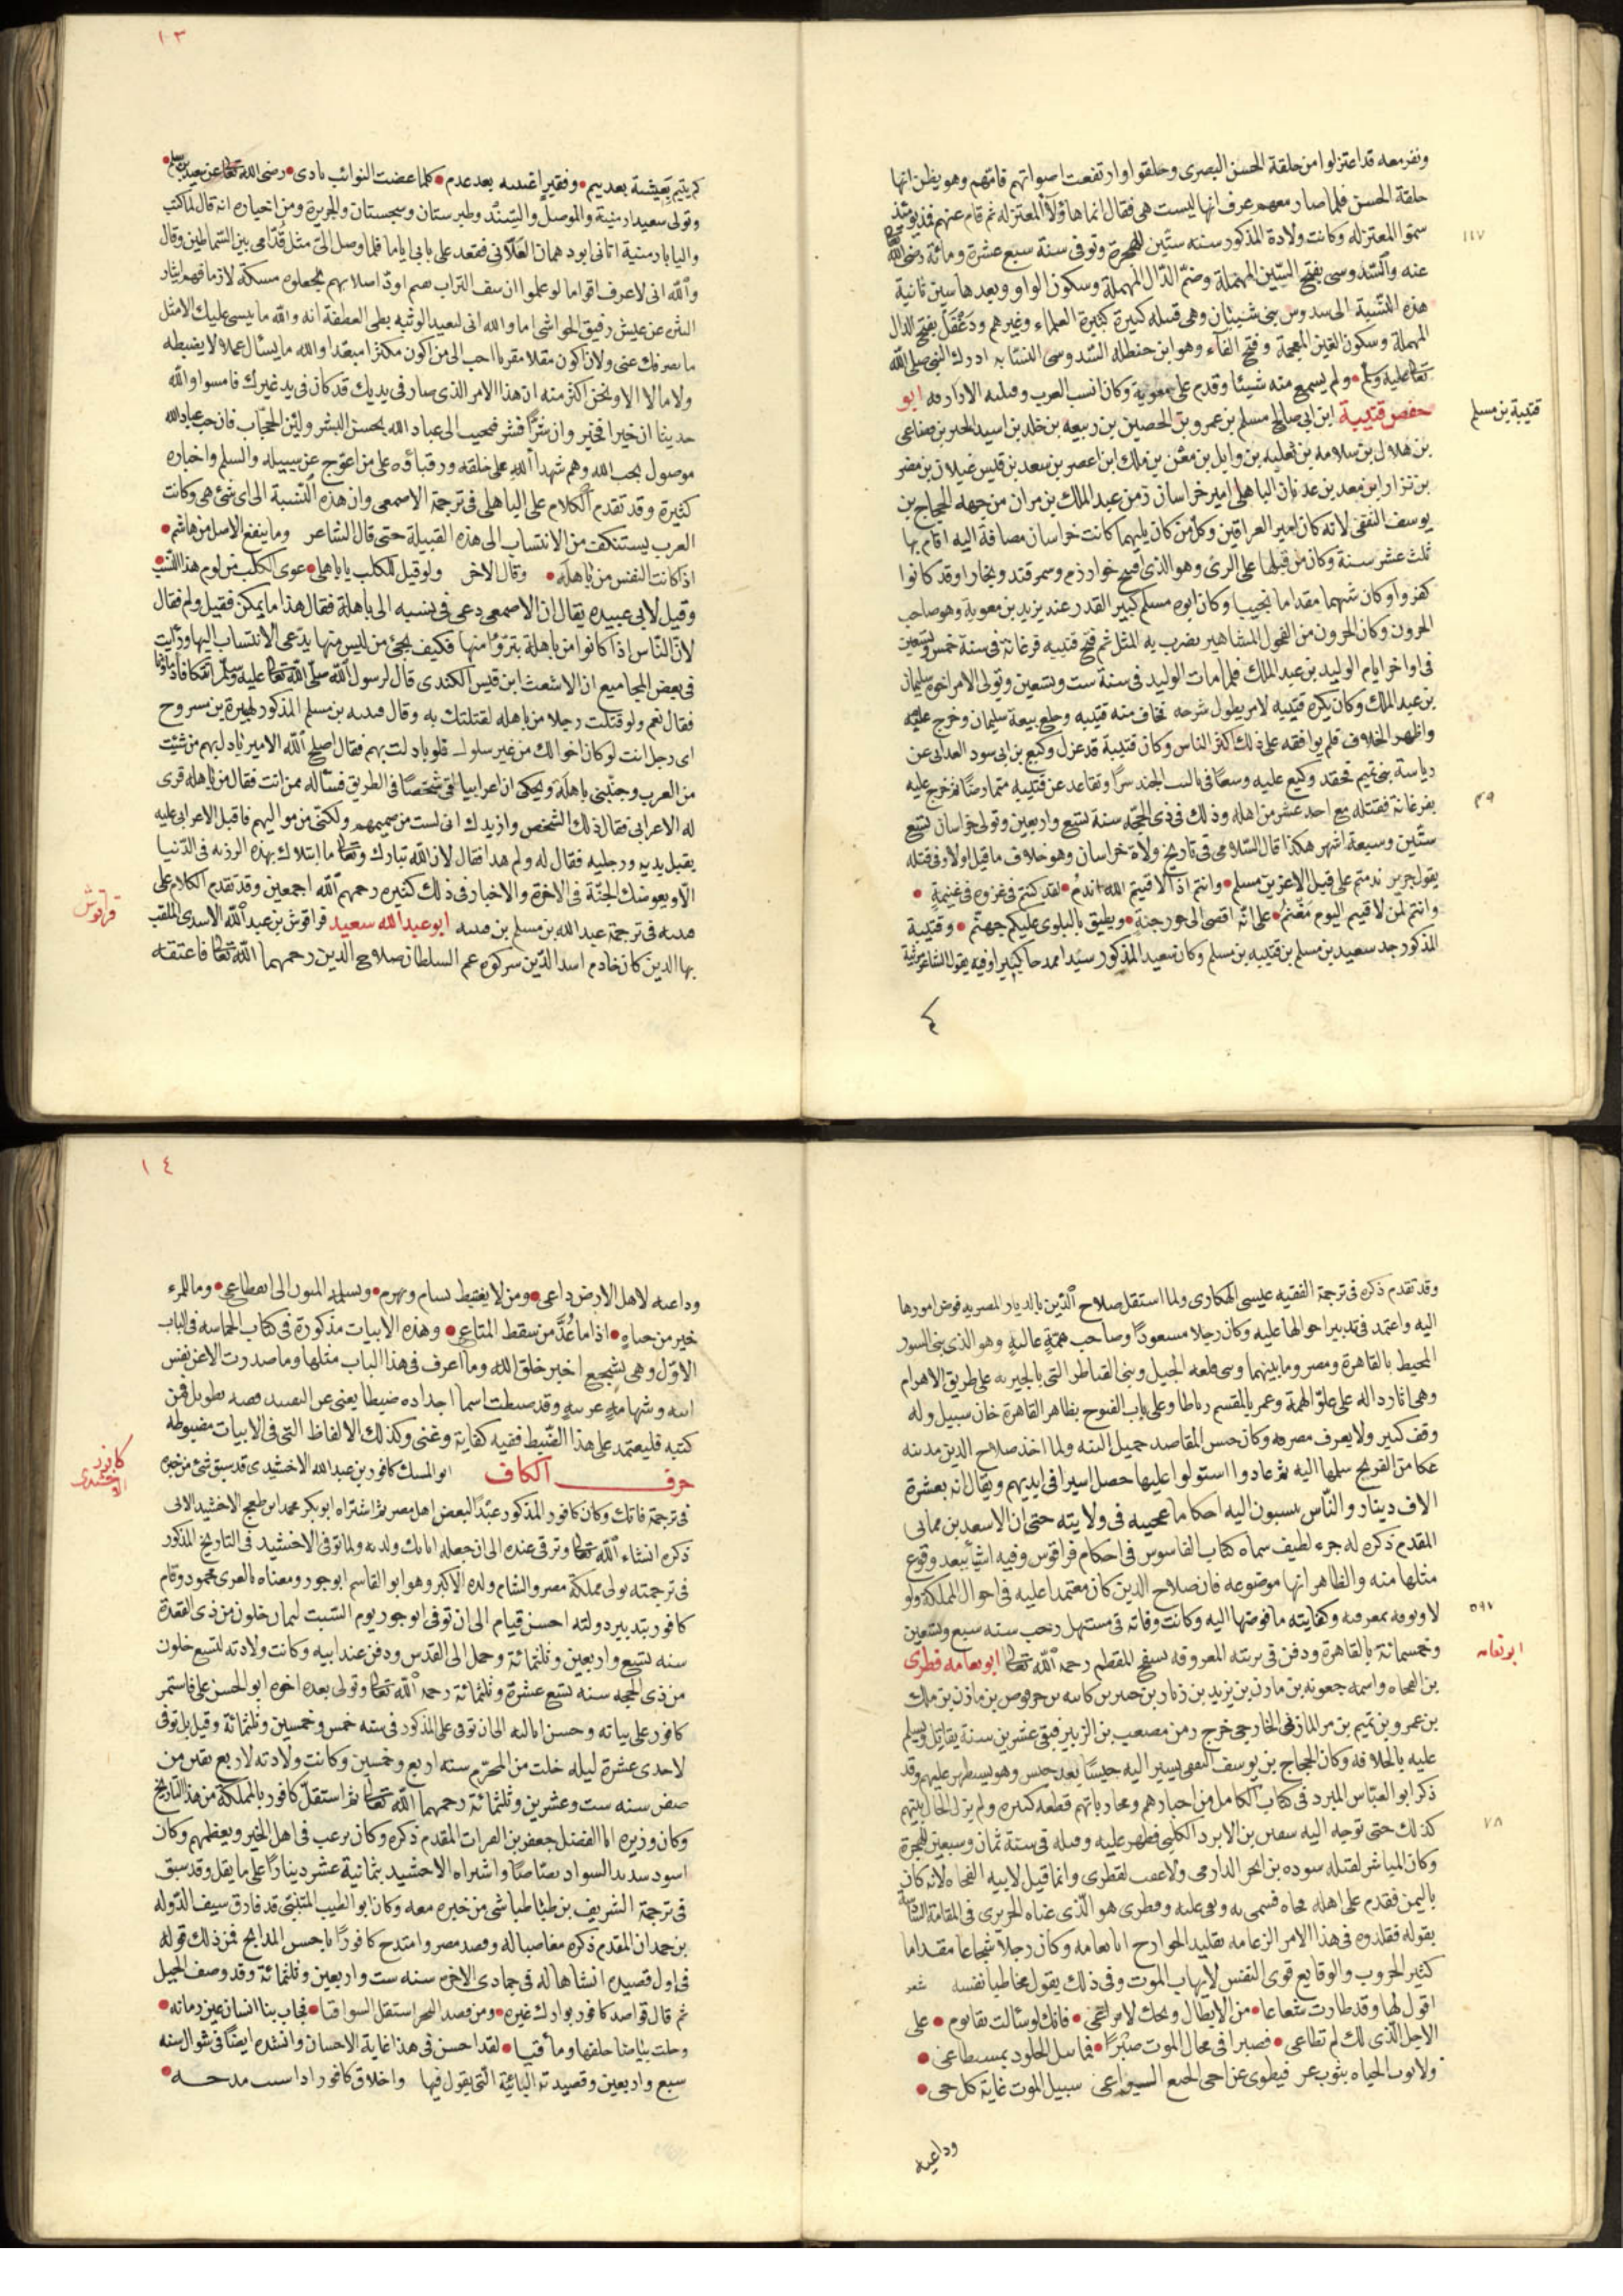 ونفر معه قد اعتزلوا من حلقة الحسن البصرى وحلقوا وارتفعت اصواتهم فامّهم وهو يظن انها
حلقة الحسن فلما صار معهم عرف انها ليست هى فقال انما هاؤلآ المعتزله ثم قام عنهم فمذ يومئذ
سمّوا المعتزله وكانت ولادة المذكور سنه ستّين للهجرة وتوفى سنة سبع عشرة ومائة رضى الله
١١٧
عنه والسّدوسى بفتح السّين المهملة وضمّ الدّال المهملة وسكون الواو وبعدها سين ثانية
هذه النّسبة الى سدوس بن شيبان وهى قبيله كبيرة كثيرة العلماء وغيرهم ودَغْفَل بفتح الدال
المهملة وسكون الغين المعجمة وفتح الفآء وهو ابن حنظله السّدوسى النسّابه ادرك النبى صلى الله
تعالى عليه وسلم ولم يسمع منه شيئا وقدم على معوية وكان انسب العرب وقتلته الازارقه ابو
حفص قتيبة ابن ابى صالح مسلم بن عمرو بن الحصين بن ربيعه بن خالد بن اسيد الخير بن قضاعى
قتيبة بن مسلم
بن هلال بن سلامه بن ثعلبه بن وايل بن معن بن ملك ابن اعصر بن سعد بن قيس غيلان بن مضر
بن نزار ابن معد بن عدنان الباهلى امير خراسان زمن عبد الملك بن مران من جهه الحجاج بن
يوسف الثقفى لانه كان امير العراقين وكل من كان يليهما كانت خراسان مضافة اليه اقام بها
ثلث عشر سنة وكان من قبلها على الرىّ وهو الذى فتح خوارزم وسمرقند وبخارا وقد كانوا
كفروا وكان شهما مقداما نجيبا وكان ابوه مسلم كبير القدر عند يزيد بن معوية وهو صاحب
الحرون وكان الحرون من الفحول المشاهير يضرب به المثل ثم فتح قتيبه فرغانة فى سنة خمس وتسعين
فى اواخر ايام الوليد بن عبد الملك فلما مات الوليد فى سنة ست وتسعين وتولى الامر اخوه سليمان
بن عبد الملك وكان يكره قتيبه لامر يطول شرحه فخاف منه قتيبه وخلع بيعة سليمان وخرج عليه
واظهر الخلاف فلم يوافقه على ذلك اكثر الناس وكان قتيبة قد عزل وكيع بن ابى سود الغدانى عن
رياسة بنى تميم فحقد وكيع عليه وسعى فى تاليب الجند سرّا وتقاعد عن قتيبه متمارضًا فخرج عليه
بفرغانة فقتله مع احد عشر من اهله وذلك فى ذى الحجّه سنة تسع واربعين وتولى خراسان تسع
٤٩
ستّين وسبعة اشهر هكذا قال السّلامى فى تاريخ ولاة خراسان وهو خلاف ما قيل اولا وفى قتله
يقول جرير ندمتم على قتل الاغر بن مسلم وانتم اذا لاقيتم الله اندمُ لقد كنتم فى غزوه فى غنيمةٍ
وانتم لمن لاقيم اليوم مَغْنَمُ على انّه افضى الى حور جنةٍ ويطبق بالبلوى عليكم جهنم وقتيبة
المذكور جد سعيد بن مسلم بن قتيبه بن مسلم وكان سعيد المذكور سيّدا ممدحا كبيرا وفيه يقول الشاعر مرثية
كم
١٠٣
كم يتيم بعيشة بعد يم وفقير اغنيه بعد عدم كلما عضت النوائب نادى رضى الله تعالى عن سعيد بن سلم
وتولى سعيد ارمنية والموصل والسّند وطبرستان وسجستان والجزيرة ومن اخباره انه قال لما كنت
واليا بارمنية اتانى ابو دهمان العَلّانى فقعد على بابى اياما فلما وصل الىّ مثل قدّامى بين السّماطين وقال
والله انى لاعرف اقواما لو علموا ان سف التراب يقيم اود اصلابهم لجعلوه مسكة لارماقهم ايثار
التنزه عن عيش رقيق الحواشى اما والله انى لبعيد الوثبه بطى العطفة انه والله ما يسى عليك الا مثل
ما يصرفك عنى ولان اكون مقلا مقربا احب الى من اكون مكثرا مبعّدا والله ما يسئال عملا لا يضبطه
ولا مالا الا ونحن اكثر منه ان هذا الامر الذى صار فى يديك قد كان فى يد غيرك فامسوا والله
حديثا ان خيرا فخير وان شرًّا فشر فتحبب الى عباد الله بحسن البشر ولين الحجاب فان حب عباد الله
موصول بحب الله وهم شهدآ الله على خلقه ورقباؤه على من اعوّج عن سبيله والسلم واخباره
كثيرة وقد تقدم الكلام على الباهلى فى ترجمة الاصمعى وان هذه النّسبة الى اى شئ هى وكانت
العرب يستنكف من الانتساب الى هذه القبيلة حتى قال الشاعر وما ينفع الاصل من هاشم
اذا كانت النفس من باهله وقال الاخر ولو قيل للكلب يا باهلى عوى الكلب من لوم هذا النّسب
وقيل لابى عبيده يقال ان الاصمعى دعى فى نسبه الى باهلة فقال هذا ما يمكن فقيل ولم فقال
لانّ النّاس اذا كانوا من باهلة تبرّؤا منها فكيف يجئ من ليس منها يدّعى الانتساب اليها ورايت
فى بعض المجاميع ان الاشعث ابن قيس الكندى قال لرسول الله صلى الله تعالى عليه وسلم اتتكافأ دماؤنا
فقال نعم ولو قتلت رجلا من باهله لقتلتك به وقال قتيبه بن مسلم المذكور لهبيرة بن مسروح
اى رجل انت لو كان اخوالك من غير سلول فلو بادلت بهم فقال اصلح الله الامير بادل بهم من شئت
من العرب وجنّبنى باهلة ويحكى ان اعرابيا لقى شخصًا فى الطريق فسئاله ممن انت فقال من باهله فرق
له الاعرابى فقال ذلك الشخص وازيدك انى لست من صميمهم ولكنّى من مواليهم فاقبل الاعرابى عليه
يقبل يديه ورجليه فقال له ولم هدا فقال لان الله تبارك وتعالى ما ابتلاك بهذه الرزيه فى الدّنيا
الّا ويعوضك الجنّة فى الاخرة والاخبار فى ذلك كثيره رحمهم الله اجمعين وقد تقدم الكلام على
قراقوش
قتيبه فى ترجمة عبد الله بن مسلم بن قتيبه ابو عبد الله سعيد قراقوش بن عبد الله الاسدى الملقب
بها الدين كان خادم اسد الدّين سركوه عم السلطان صلاح الدين رحمهما الله تعالى فاعتقه
وقد تقدم ذكره فى ترجمة الفقيه عيسى الهكارى ولما استقل صلاح الدّين بالديار المصريه فوض امورها
اليه واعتمد فى تدبير احوالها عليه وكان رجلا مسعودًا وصاحب همّةٍ عاليةٍ وهو الذى بنى السور
المحيط بالقاهرة ومصر وما بينهما وبنى قلعه الجبل وبنى القناطر التى بالجيزيه على طريق الاهرام
وهى اثار داله على علوّ الهمة وعمر بالمقسم رباطا وعلى باب الفتوح بظاهر القاهرة خان سبيل وله
وقف كبير ولا يعرف مصرفه وكان حسن المقاصد جميل النيه ولما اخذ صلاح الدين مدينه
عكا من الفرنج سلمها اليه ثم عادوا استولوا عليها حصل اسيرا فى ايديهم ويقال انه بعشرة
الاف دينار والنّاس ينسبون اليه احكاما عجيبه فى ولايته حتى ان الاسعد بن مماتى
المقدم ذكره له جزء لطيف سماه كتاب الفاسوس فى احكام قراقوس وفيه اشيآ يبعد وقوع
مثلها منه والظاهر انها موضوعه فان صلاح الدين كان معتمدا عليه فى احوال المملكة ولو
لا وثوقه بمعرفته وكفايته ما فوضها اليه وكانت وفاته فى مستهل رجب سنه سبع وتسعين
٥٩٧
وخمسمائة بالقاهرة ودفن فى تربته المعروفه بسفح المقطم رحمه الله تعالى ابو نعامه قطرى
ابو نعامه
بن الفجاه واسمه جعونه بن مازن بن يزيد بن زياد بن حبتر بن كابيه بن حرقوص بن مازن بن ملك
بن عمرو بن تميم بن مر المازنى الخارجى خرج زمن مصعب بن الزبير فبقى عشرين سنة يقاتل ويسلم
عليه بالخلافه وكان الحجاج بن يوسف الثقفى يسير اليه جيشًا بعد جيش وهو يستظهر عليهم وقد
ذكر ابو العبّاس المبرد فى كتاب الكامل من اخبارهم ومحارباتهم قطعه كبيره ولم يزل الحال بينهم
كذلك حتى توجه اليه سفين بن الابرد الكلبى فظهر عليه وقتله فى سنة ثمان وسبعين للهجرة
٧٨
وكان المباشر لقتله سوده بن ابحر الدارمى ولا عقب لقطرى وانما قيل لابيه الفجاه لانه كان
باليمن فقدم على اهله فجاه فسمى به وبقى عليه وقطرى هو الّذى عناه الحريرى فى المقامة السّادسة
بقوله فقلدوه فى هذا الامر الزعامه تقليد الخوارج ابا نعامه وكان رجلا شجاعا مقداما
كثير الحروب والوقايع قوى النفس لا يهاب الموت وفى ذلك يقول مخاطبا نفسه شعر
اقول لها وقد طارت شعاعا من الابطال ويحك لا تراعى فانك لو سئالت بقا يوم على
الاجل الذى لك لم تطاعى فصبرا فى مجال الموت صبرًا فما نيل الخلود بمستطاعى
ولا ثوب الحياه بثوب عز فيطوى عن اخى الخنع اليراعى سبيل الموت غاية كل حى
وداعيه
١٠٤
وداعيه لاهل الارض داعى ومن لا يغتبط يسام ويهرم ويسلمه المنون الى انقطاعى وما للمرء
خير من حياهٍ اذا ما عُدّ من سقط المتاعى وهذه الابيات مذكورة فى كتاب الحماسه فى الباب
الاوّل وهى تشجع اجبر خلق الله وما اعرف فى هذا الباب مثلها وما صدرت الا عن نفس
ابيه وشهامه عربيه وقد ضبطت اسما اجداده ضبطا يغنى عن التقييد قصه يطول فمن
كتبه فليعتمد على هذا الضّبط ففيه كفاية وغنى وكذلك الالفاظ التى فى الابيات مضبوطه
حرف الكاف ابو المسك كافور بن عبد الله الاخشيدى قد سبق شئ من خبره
كافور الاخشيدى
فى ترجمة فاتك وكان كافور المذكور عبدًا لبعض اهل مصر ثم اشتراه ابو بكر محمد ابن طغج الاخشيد الاتى
ذكره انشاء الله تعالى وترقى عنده الى ان جعله اتابك ولديه ولما توفى الاخشيد فى التاريخ المذكور
فى ترجمته تولى مملكة مصر والشام ولده الاكبر وهو ابو القاسم ابو جور ومعناه بالعربى محمود وقام
كافور بتدبير دولته احسن قيام الى ان توفى ابو جور يوم السّبت لثمان خلون من ذى القعدة
سنه تسع واربعين وثلثمائة وحمل الى القدس ودفن عند ابيه وكانت ولادته لتسع خلون
من ذى الحجه سنه تسع عشرة وثلثمائة رحمه الله تعالى وتولى بعده اخوه ابو الحسن على فاستمر
كافور على نيابته وحسن ايالته الى ان توفى على المذكور فى سنه خمس وخمسين وثلثمائة وقيل بل توفى
لاحدى عشرة ليله خلت من المحرّم سنه اربع وخمسين وكانت ولادته لاربع بقين من
صفر سنه ست وعشرين وثلثمائة رحمهما الله تعالى ثم استقلّ كافور بالمملكة من هذا التاريخ
وكان وزيره ابا الفضل جعفر بن الفرات المقدم ذكره وكان يرغب فى اهل الخير ويعظمهم وكان
اسود شديد السواد بصّاصًا واشتراه الاخشيد بثمانية عشر دينارًا على ما يقل وقد سبق
فى ترجمة الشريف بن طباطبا شى من خبره معه وكان ابو الطيب المتنبّى قد فارق سيف الدّوله
بن حمدان المقدم ذكره مغاضبا له وقصد مصر وامتدح كافورًا باحسن المدايح فمن ذلك قوله
فى اول قصيده انشاها له فى جمادى الاخره سنه ست واربعين وثلثمائة وقد وصف الخيل
ثم قال قواصد كافور بوارك غيره ومن قصد البحر استقل السواقيا فجات بنا انسان عين زمانه
وخلت بياضا خلفها ومآقيا لقد احسن فى هذا غاية الاحسان وانشده ايضًا فى شوال سنه
سبع واربعين وقصيدته البائيّة الّتى يقول فيها واخلاق كافور اذا شئت مدحه